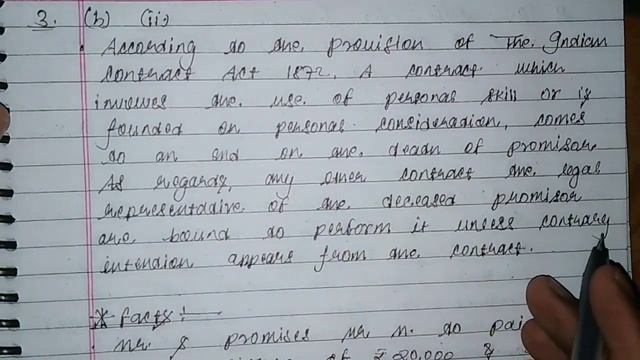 3. (b) (ii)
According to the provision of The Indian
Contract Act 1872, A contract which
involves the use of personal skill or is
founded on personal consideration, comes
to an end on the death of promisor.
As regards, any other contract the legal
representative of the deceased promisor
are bound to perform it unless contrary
intention appears from the contract.
* facts :-
Mr. S promises Mr. M. to pai
of ₹ 20,000 &